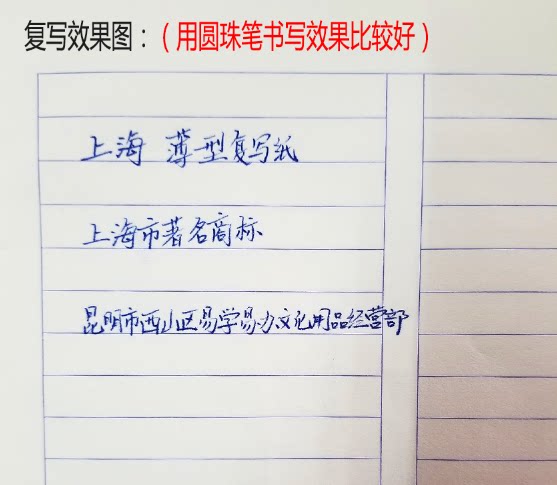 复写效果图：（用圆珠笔书写效果比较好）
上海 薄型复写纸
上海市著名商标
昆明市西山区易学易办文化用品经营部